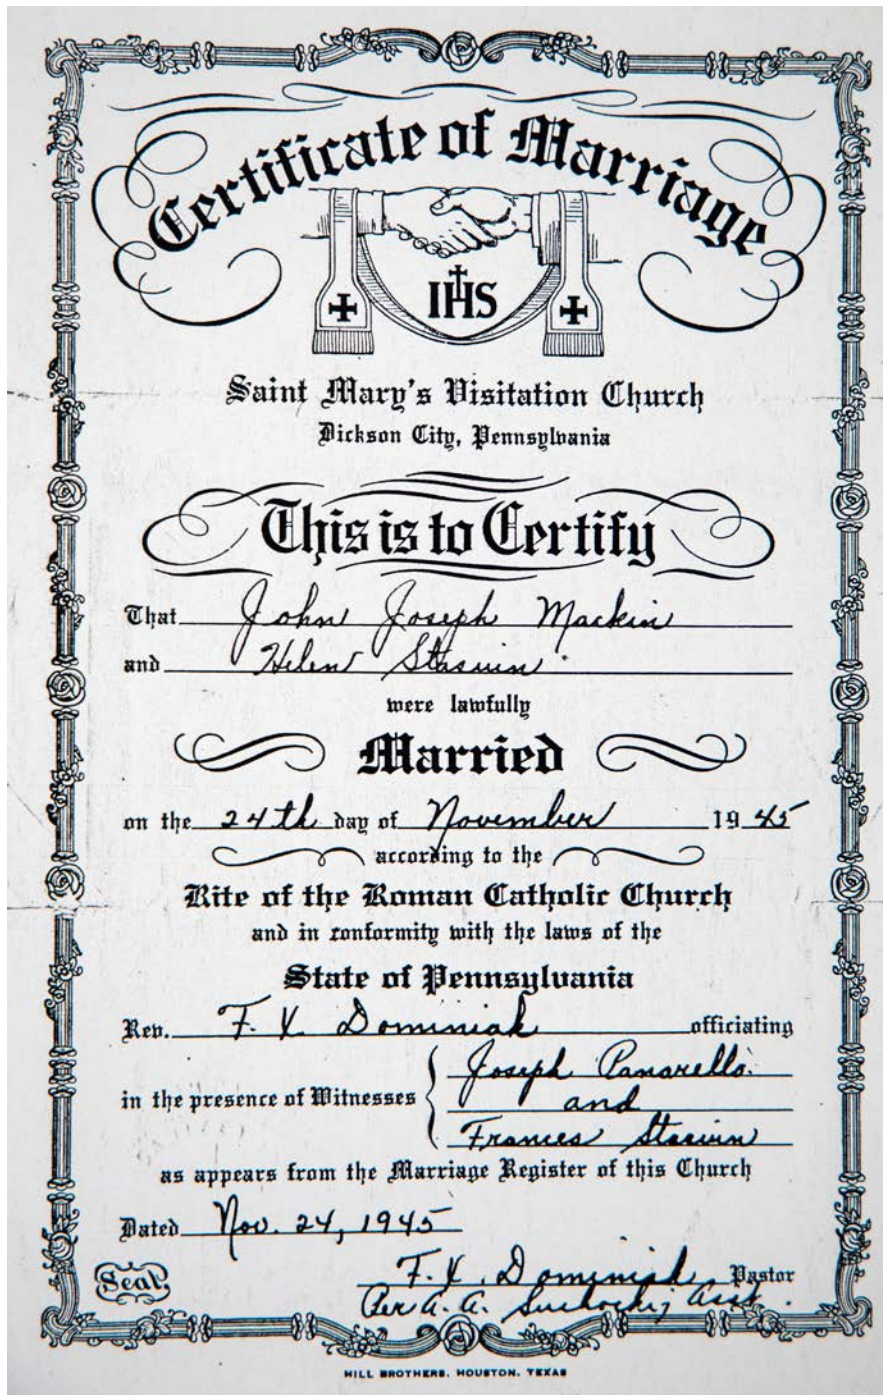 Certificate of Marriage
IHS
Saint Mary's Visitation Church
Dickson City, Pennsylvania
This is to Certify
That John Joseph Mackin
and Helen Stasuin
were lawfully
Married
on the 24th day of November 1945
according to the
Rite of the Roman Catholic Church
and in conformity with the laws of the
State of Pennsylvania
Rev. F. X. Dominiak officiating
in the presence of Witnesses Joseph Panarello
and
Frances Stasuin
as appears from the Marriage Register of this Church
Dated Nov. 24, 1945
Seal
F. X. Dominiak Pastor
Per A. A. Suchocki, Asst.
HILL BROTHERS, HOUSTON, TEXAS